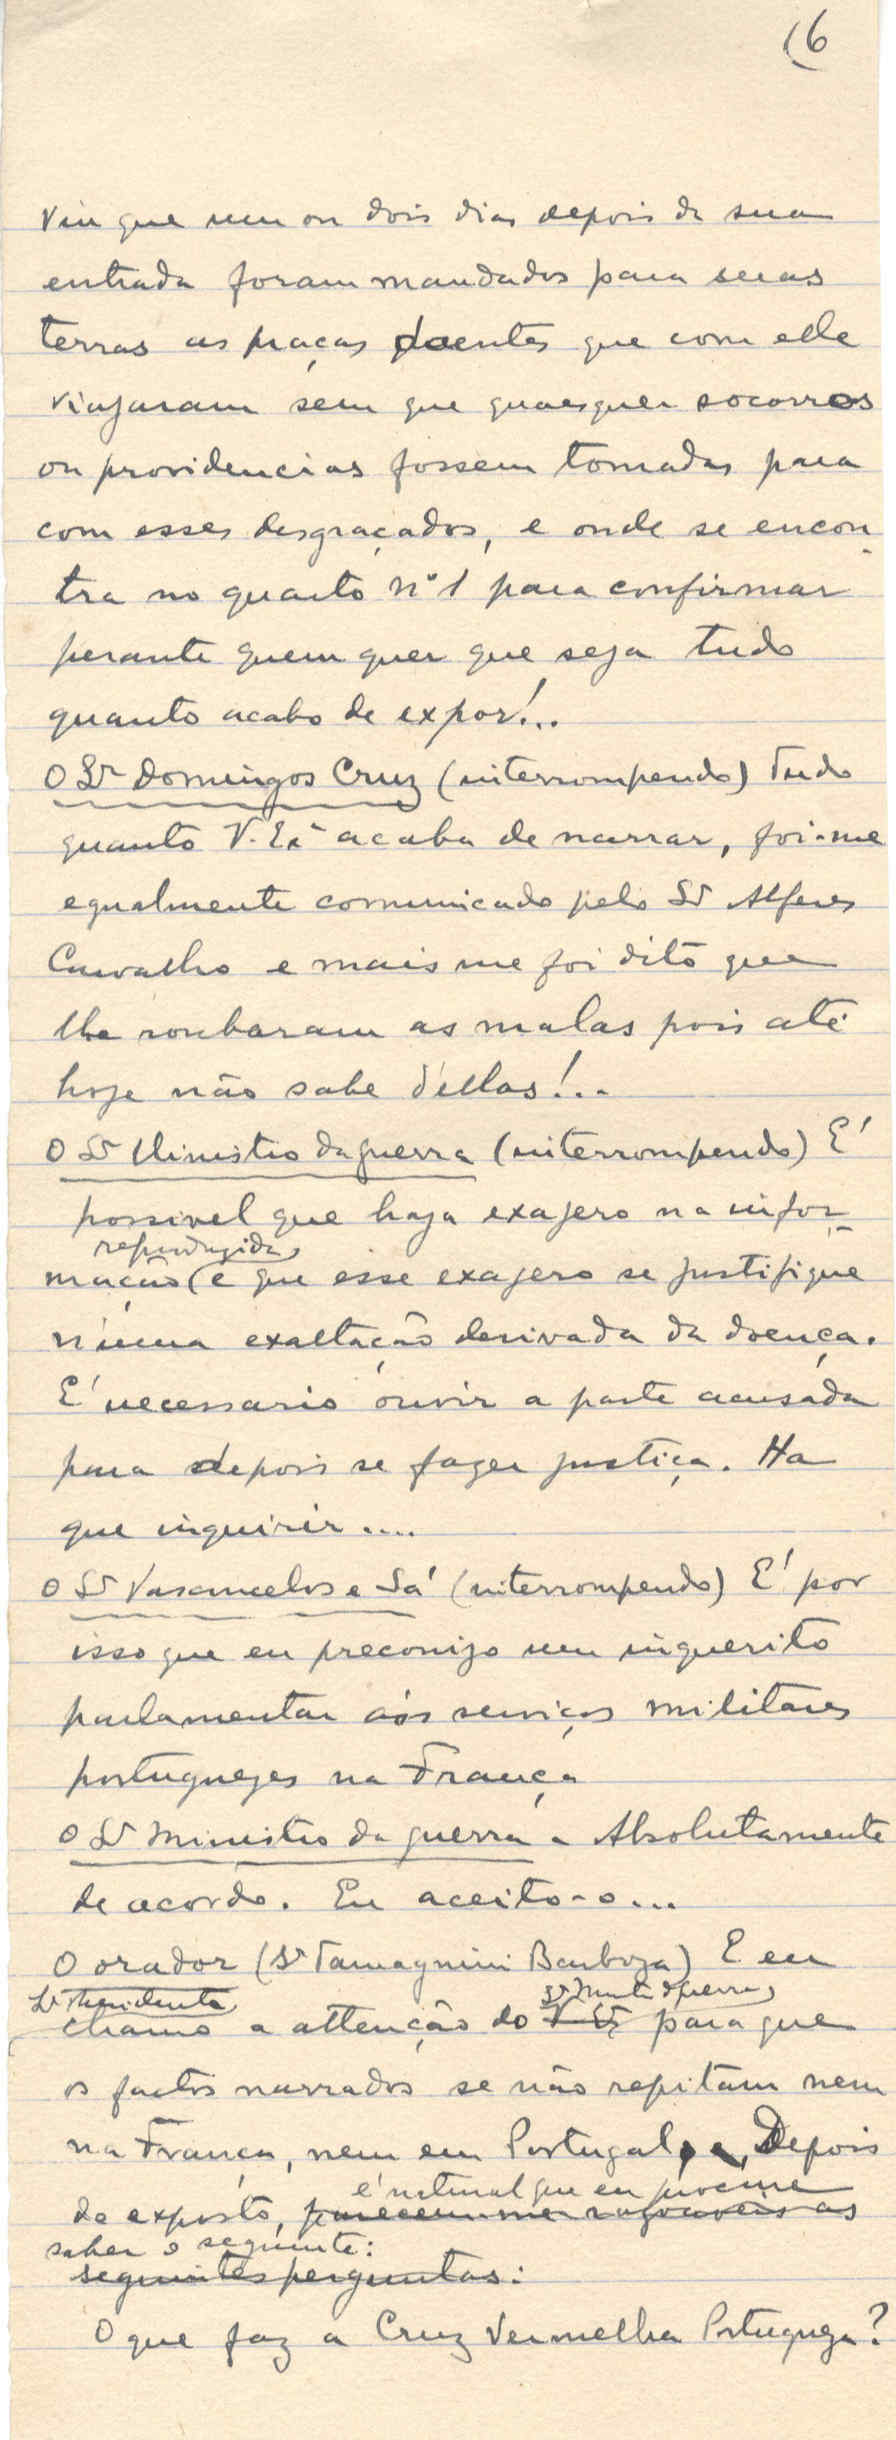 16
viu que um ou dois dias depois da sua
entrada foram mandados para suas
terras as praças doentes que com elle
viajaram sem que quaesquer socorros
ou providencias fossem tomadas para
com esses desgraçados, e onde se encon-
tra no quarto nº 1 para confirmar
perante quem quer que seja tudo
quanto acabo de expor!...
O Sr Domingos Cruz (interrompendo) Tudo
quanto V. Exª acaba de narrar, foi-me
egualmente comunicado pelo Sr Alferes
Carvalho e mais me foi dito que
lhe roubaram as malas pois até
hoje não sabe d'ellas!...
O Sr Ministro da guerra (interrompendo) E'
possivel que haja exajero na infor-
reproduzida
mação e que esse exajero se justifique
n'uma exaltação derivada da doença.
E' necessario ouvir a parte acusada
para depois se fazer justiça. Ha
que inquirir....
O Sr Vasconcelos e Sá (interrompendo) E' por
isso que eu preconizo um inquerito
parlamentar aos serviços militares
portuguezes na França
O Sr Ministro da guerra - Absolutamente
de acordo. Eu aceito-o...
O orador (Sr Tamagnini Barboza) E eu
Sr Presidente, Sr Mintº da guerra,
chamo a attenção do V. Exª para que
os factos narrados se não repitam nem
na França, nem em Portugal, e, Depois
é natural que eu procure
do exposto, parecem-me rasoaveis as
saber o seguinte:
seguintes perguntas:
O que faz a Cruz Vermelha Portugueza?